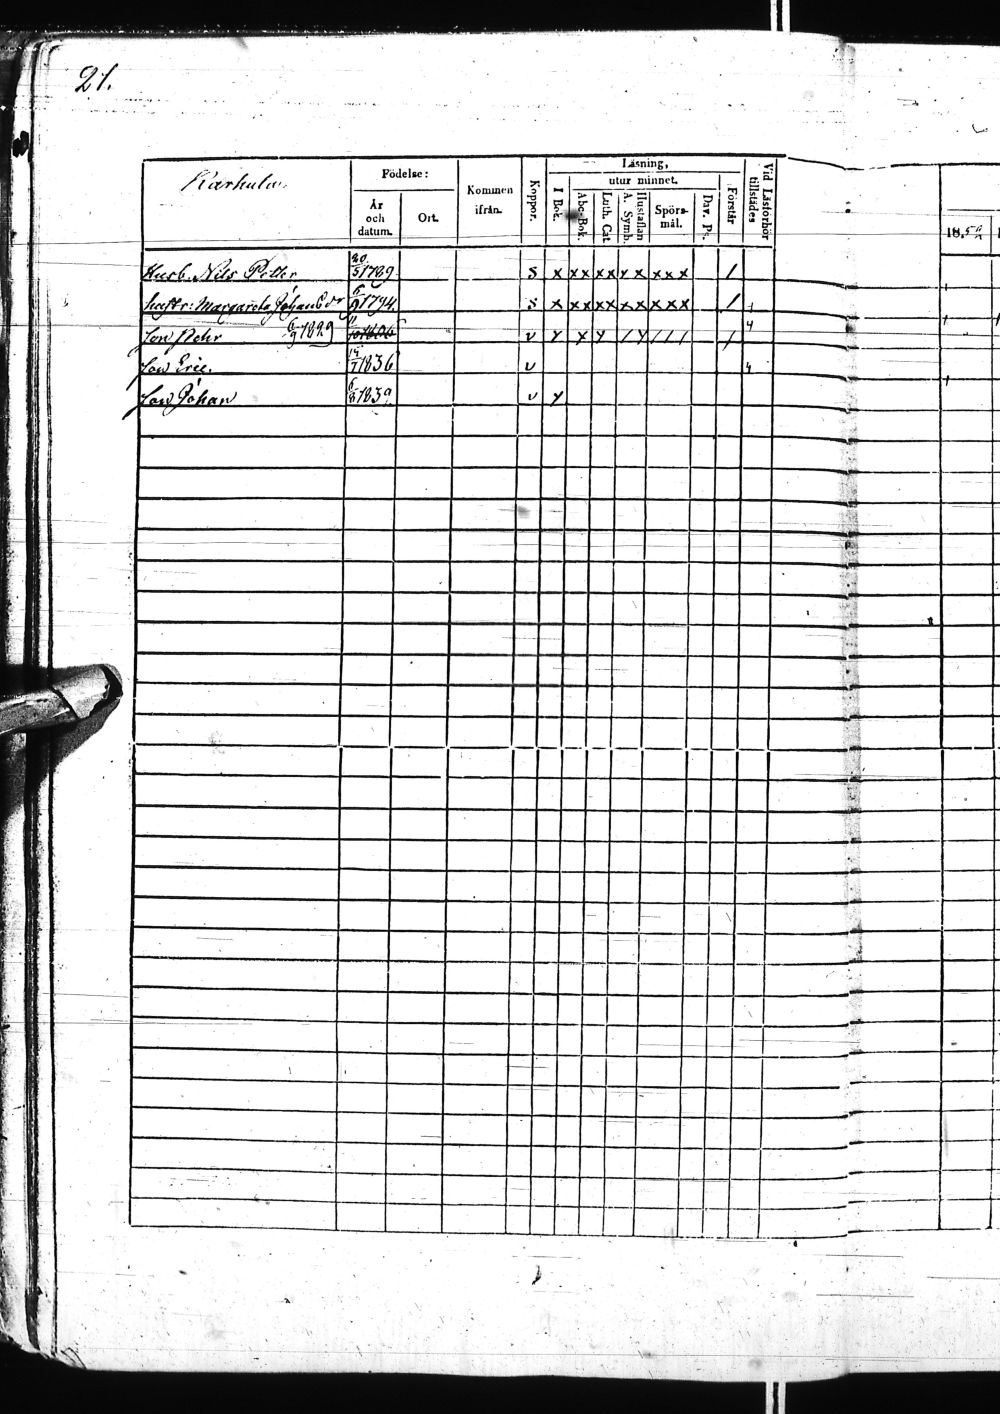 21.
Karhula.
Födelse:
År och datum.
Ort.
Kommen ifrån.
Koppor.
Läsning,
I Bok.
utur minnet.
Abc-Bok.
Luth. Cat.
Hustaflan A. Symb.
Spörsmål.
Dav. Ps.
Förstår
Vid Läsförhör tillstädes
18
Husb. Nils Petter 20/5 1789. s x x x x x x x x x x /
hustr: Margareta Johansdr 6/9 1794 s x x x x x x x x x x /
Son Pehr 6/9 1829 v
Son Eric. 14/7 1836 v
Son Johan 6/8 1839. v